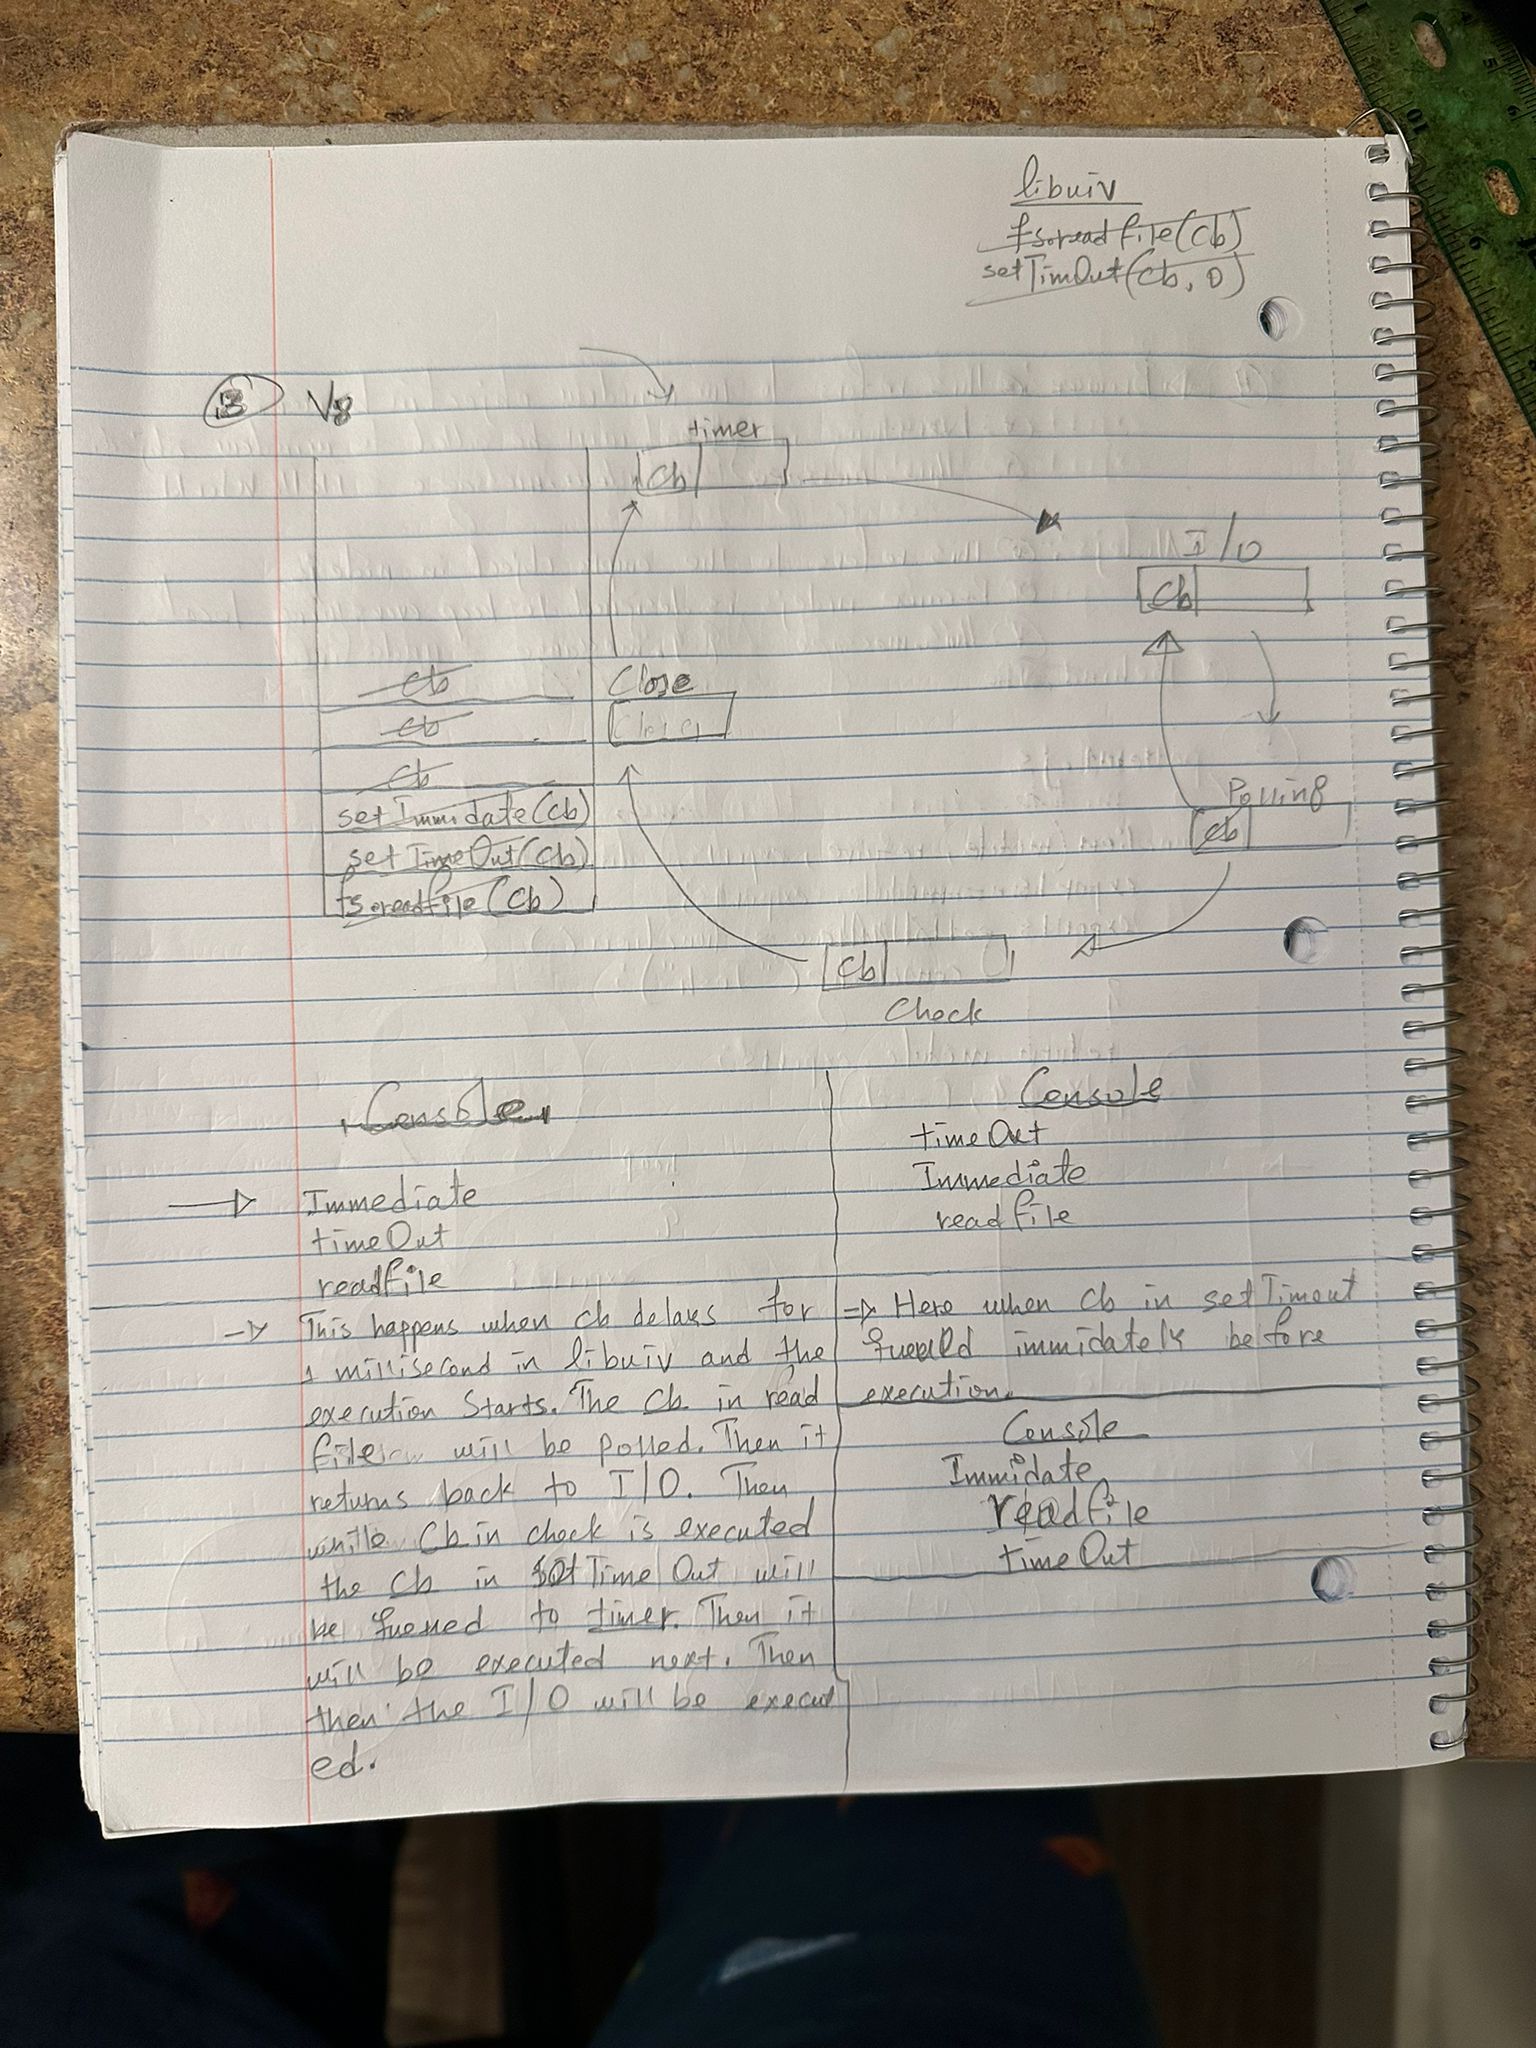 libuiv
fs.readfile(Cb)
setTimOut(Cb, 0)
3 V8
timer
Cb
I/O
Cb
Cb
Close
Cb
Cb
setImmidate(Cb)
Polling
Cb
setTimeOut(Cb)
fs.readfile(Cb)
Cb
Check
Console
Immediate
timeOut
readfile
This happens when Cb delays for
1 millisecond in libuiv and the
execution Starts. The Cb in read
file will be polled. Then it
returns back to I/O. Then
while Cb in check is executed
the Cb in setTimeOut will
be queued to timer. Then it
will be executed next. Then
then the I/O will be execut
ed.
Console
timeOut
Immediate
readfile
Here when Cb in setTimeout
immidately before
execution.
Console
Immidate
readfile
timeOut